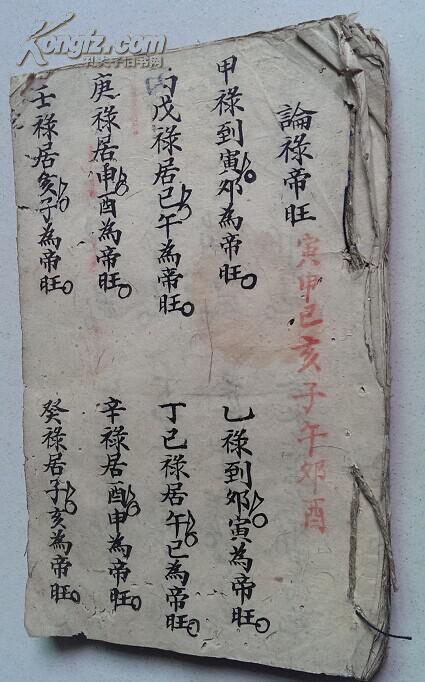 論祿帝旺
寅申巳亥子午卯酉
甲祿到寅卯為帝旺
乙祿到卯寅為帝旺
丙戊祿居巳午為帝旺
丁己祿居午巳為帝旺
庚祿居申酉為帝旺
辛祿居酉申為帝旺
壬祿居亥子為帝旺
癸祿居子亥為帝旺
Kongfz.com
孔夫子旧书网